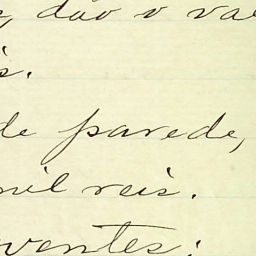 dão o va
s.
de parede,
mil reis.
ventes;